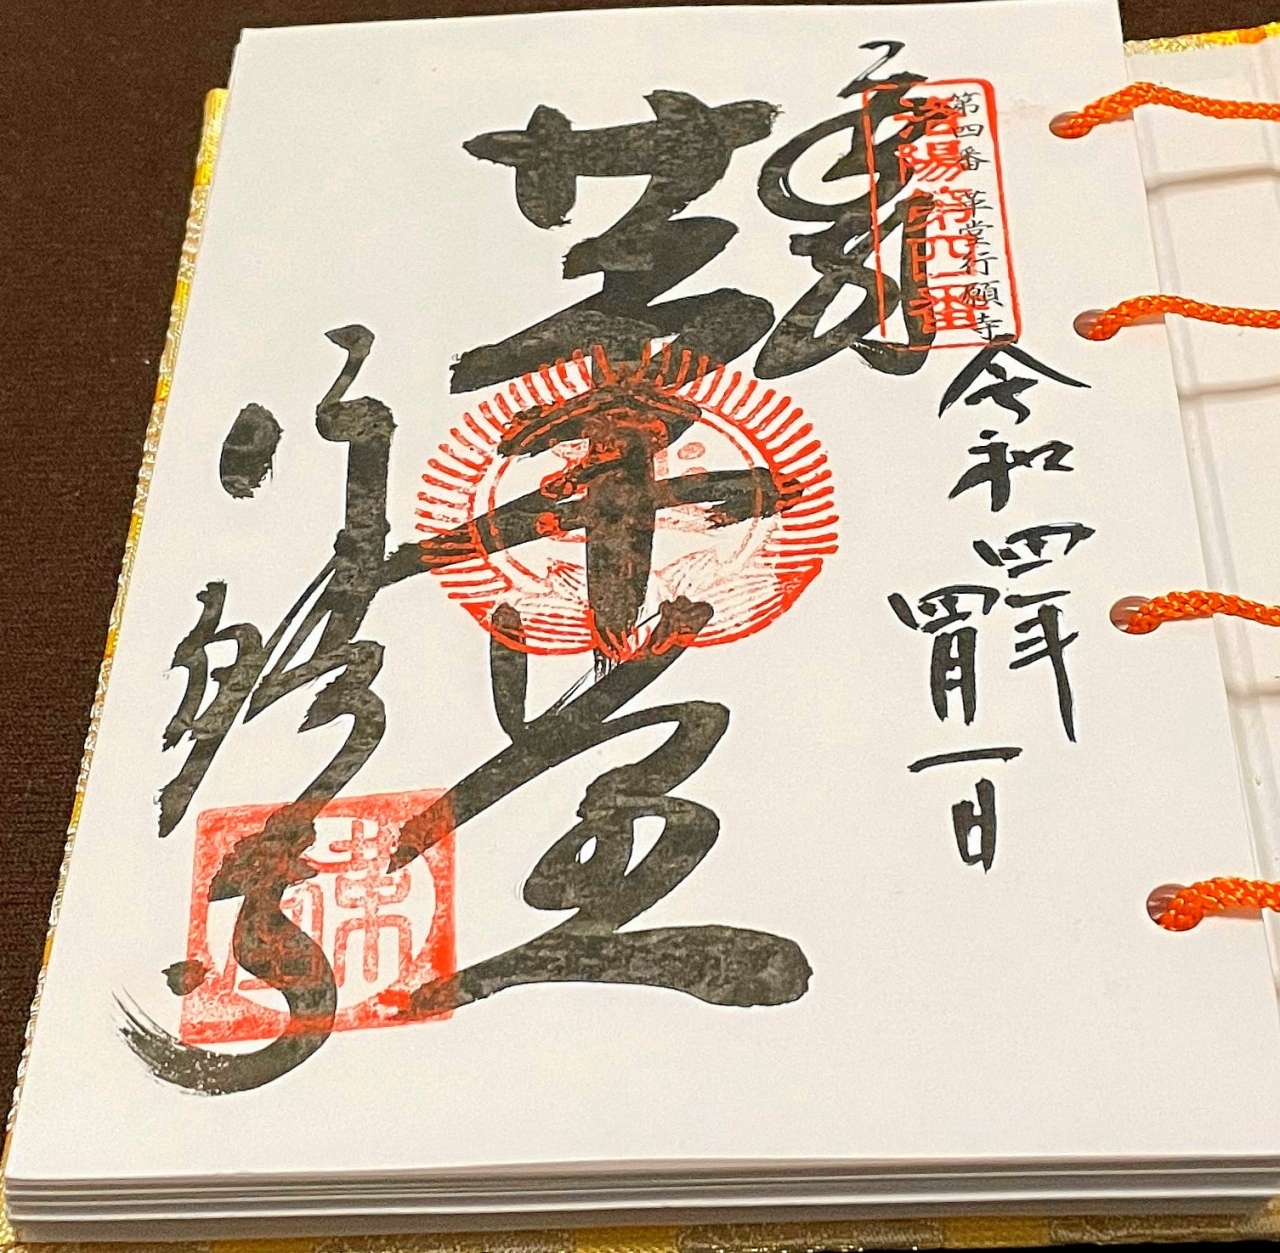 第四番 革堂行願寺
洛陽第四番
奉拝
令和四年
四月一日
革堂
行願寺